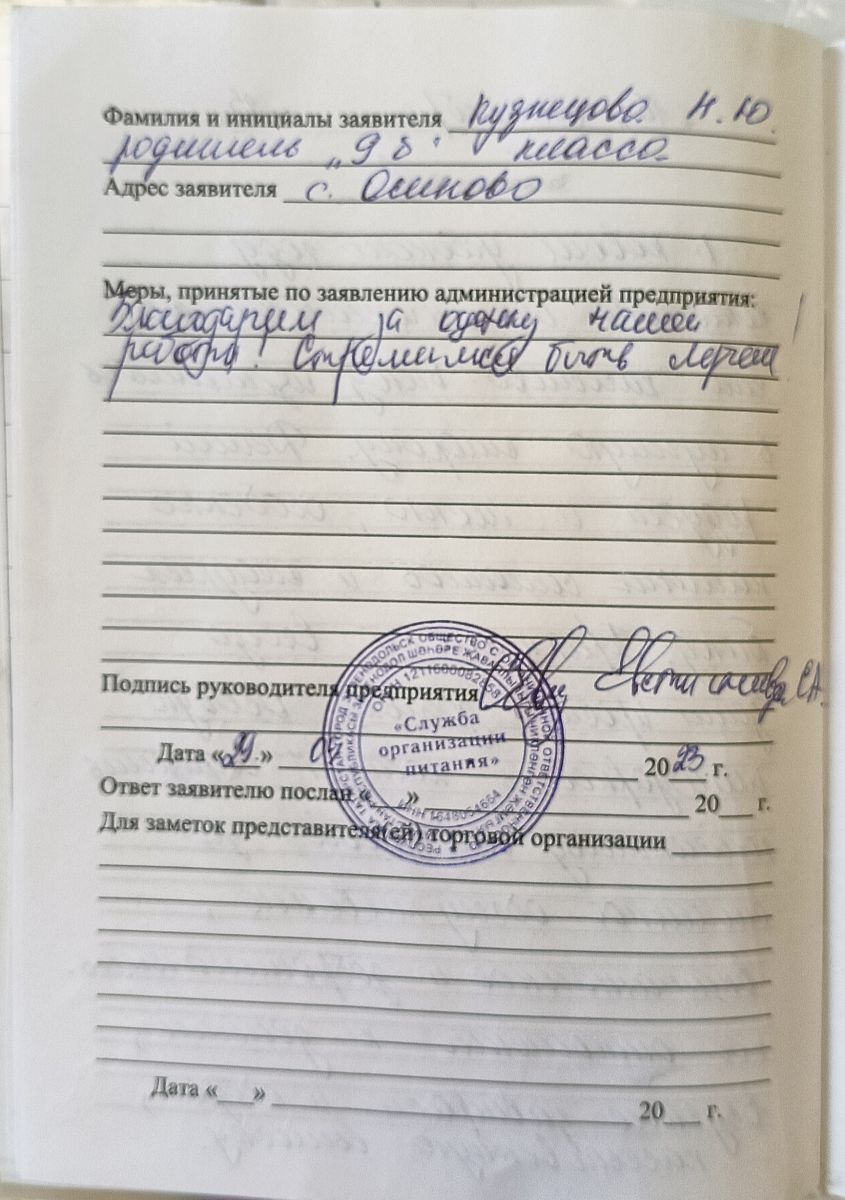 Фамилия и инициалы заявителя Кузнецова Н. Ю.
родитель "9 б" класса
Адрес заявителя с. Осиново
Меры, принятые по заявлению администрацией предприятия:
Благодарим за оценку нашей
работы! Стремимся быть лучше!
Подпись руководителя предприятия
«Служба
организации
питания»
ИНН 1648054664
Дата «29» 2023 г.
Ответ заявителю послан «___» 20___ г.
Для заметок представителя(ей) торговой организации
Дата «___» 20___ г.